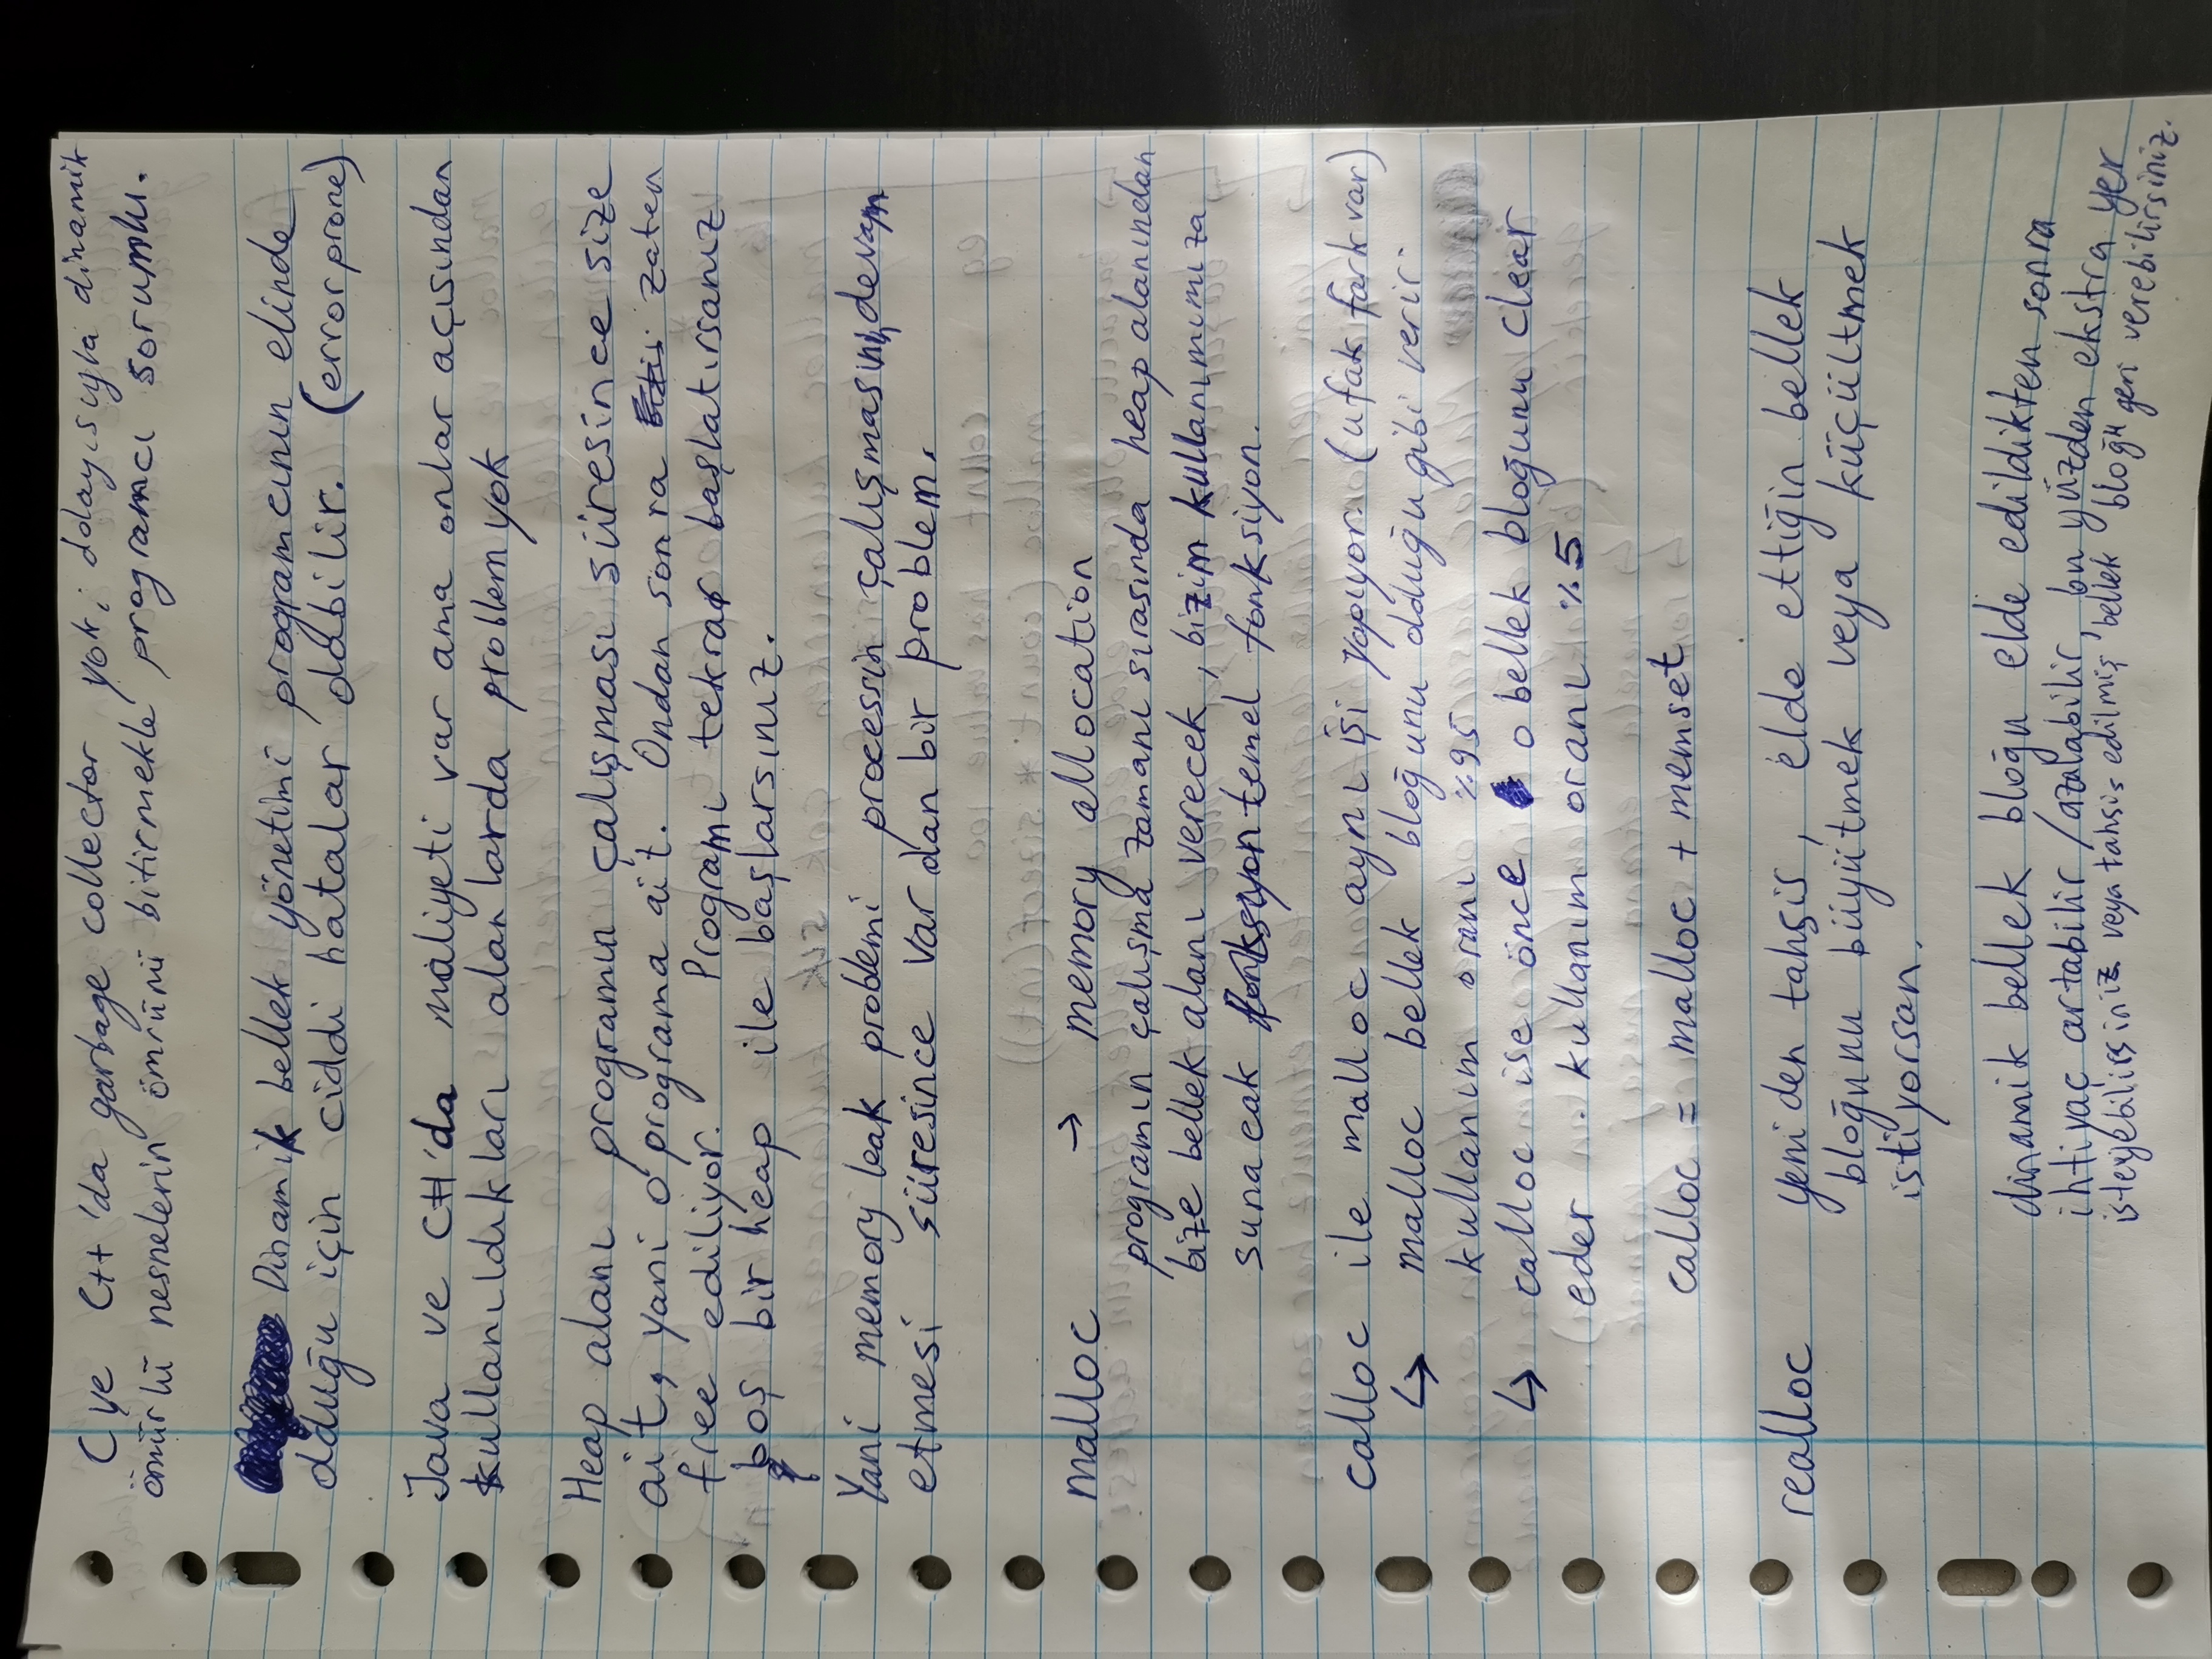 C ve C++'da garbage collector yok; dolayısıyla dinamik
ömürlü nesnelerin ömrünü bitirmekle programcı sorumlu.
Dinamik bellek yönetimi programcının elinde
olduğu için ciddi hatalar olabilir. (error prone)
Java ve C#'da maliyeti var ama onlar açısından
kullanıldıkları alanlarda problem yok
Heap alanı programın çalışması süresince size
ait, yani o programa ait. Ondan sonra zaten
free ediliyor. Programı tekrar başlatırsanız
boş bir heap ile başlarsınız.
Yani memory leak problemi processin çalışmasının devam
etmesi süresince var olan bir problem.
malloc → memory allocation
programın çalışma zamanı sırasında heap alanından
bize bellek alanı verecek, bizim kullanımımıza
sunacak fonksiyon temel fonksiyon.
calloc ile malloc aynı işi yapıyor. (ufak fark var)
↳ malloc bellek bloğunu olduğu gibi verir.
kullanım oranı %95
↳ calloc ise önce o bellek bloğunu clear
eder. kullanım oranı %5
calloc = malloc + memset
realloc yeniden tahsis, elde ettiğin bellek
bloğunu büyütmek veya küçültmek
istiyorsan.
dinamik bellek bloğu elde edildikten sonra
ihtiyaç artabilir/azalabilir, bu yüzden ekstra yer
isteyebilirsiniz veya tahsis edilmiş bellek bloğu geri verebilirsiniz.